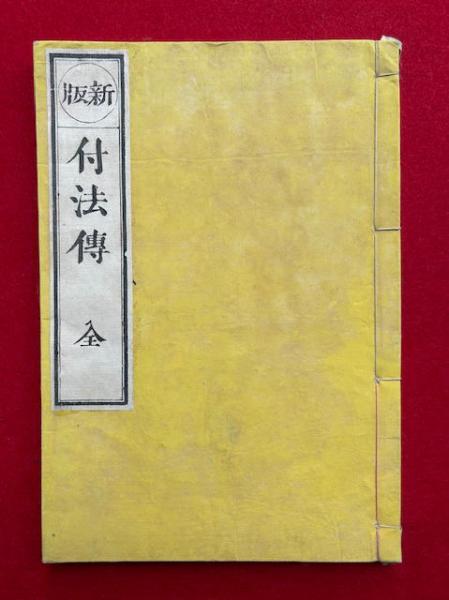 新版
付法傳
全